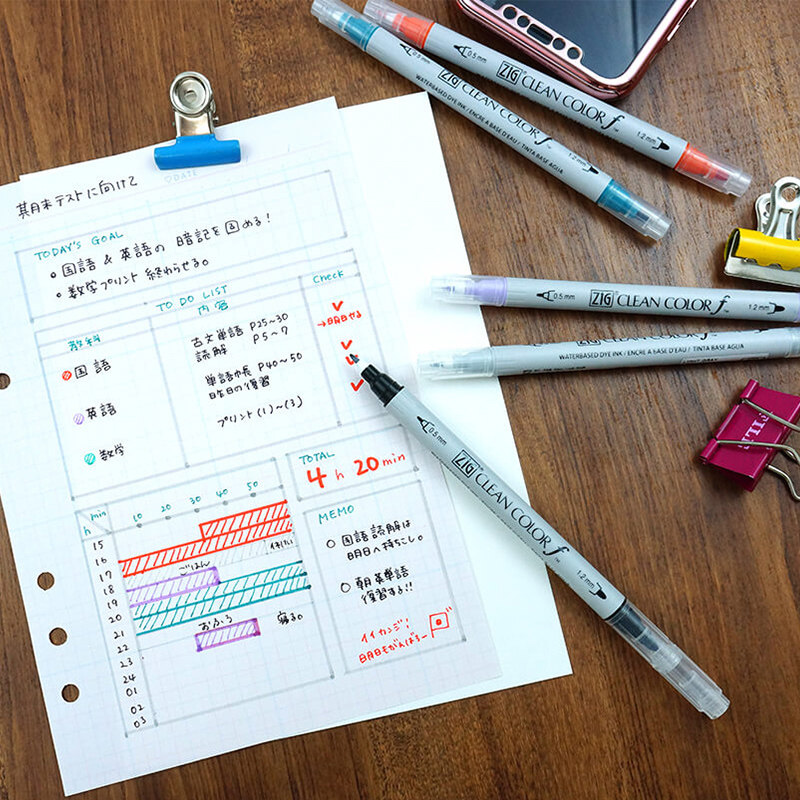 期末テストに向けて
DATE
TODAY'S GOAL
国語 & 英語の 暗記を 固める!
数学プリント 終わらせる。
TO DO LIST
Check
教科
内容
国語
古文単語 P25～30
読解 P5～7
→明日やる
英語
単語中長 P40～50
昨日の復習
数学
プリント(1)～(3)
TOTAL
4 h 20 min
h min
10 20 30 40 50
15
16
17
18
19
20
21
22
23
24
01
02
03
ごはん
おふろ
寝る。
MEMO
国語読解は
明日へ持ちこし。
朝英単語
復習する!!
イイカンジ!
明日もがんばるー
0.5 mm ZIG CLEAN COLOR f 1.2 mm
0.5 mm ZIG CLEAN COLOR f 1.2 mm
WATERBASED DYE INK / ENCRE A BASE D'EAU / TINTA BASE AGUA
0.5 mm ZIG CLEAN COLOR f 1.2 mm
WATERBASED DYE INK / ENCRE A BASE D'EAU / TINTA BASE AGUA
0.5 mm ZIG CLEAN COLOR f 1.2 mm